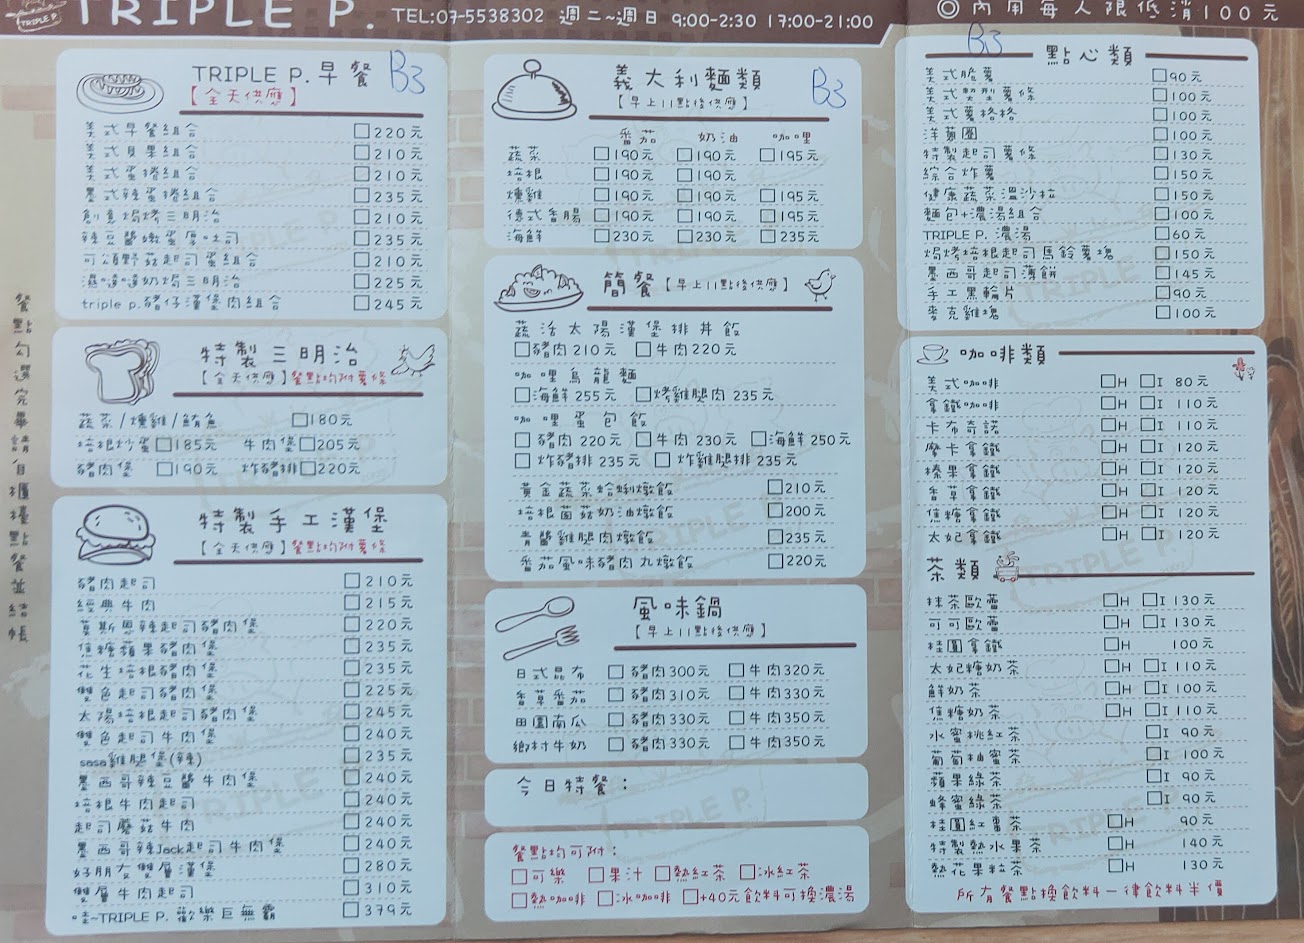 TRIPLE P. TEL:07-5538302 週二~週日 9:00-2:30 17:00-21:00
◎內用每人限低消100元
餐點勾選完畢請自櫃檯點餐並結帳
TRIPLE P.早餐 B3
【全天供應】
美式早餐組合 □220元
美式貝果組合 □210元
美式蛋捲組合 □210元
墨式辣蛋捲組合 □235元
創意焗烤三明治 □210元
辣豆醬嫩蛋厚吐司 □235元
可頌野菇起司蛋組合 □210元
濕噠噠奶焗三明治 □225元
triple p.豬仔漢堡肉組合 □245元
特製三明治
【全天供應】餐點均附薯條
蔬菜/燻雞/鮪魚 □180元
培根炒蛋□185元 牛肉堡□205元
豬肉堡 □190元 炸豬排□220元
特製手工漢堡
【全天供應】餐點均附薯條
豬肉起司 □210元
經典牛肉 □215元
莫斯恩辣起司豬肉堡 □220元
焦糖蘋果豬肉堡 □235元
花生培根豬肉堡 □235元
雙色起司豬肉堡 □225元
太陽培根起司豬肉堡 □245元
雙色起司牛肉堡 □240元
sasa雞腿堡(辣) □235元
墨西哥辣豆醬牛肉堡 □240元
培根牛肉起司 □240元
起司蘑菇牛肉 □240元
墨西哥辣Jack起司牛肉堡 □240元
好朋友雙層漢堡 □280元
雙層牛肉起司 □310元
哇~TRIPLE P. 歡樂巨無霸 □379元
義大利麵類 B3
【早上11點後供應】
番茄 奶油 咖哩
蔬菜 □190元 □190元 □195元
培根 □190元 □190元
燻雞 □190元 □190元 □195元
德式香腸 □190元 □190元 □195元
海鮮 □230元 □230元 □235元
簡餐【早上11點後供應】
蔬活太陽漢堡排丼飯
□豬肉210元 □牛肉220元
咖哩烏龍麵
□海鮮 255元 □炸雞腿肉 235元
咖哩蛋包飯
□ 豬肉 220元 □ 牛肉 230元 □海鮮250元
□ 炸豬排 235元 □ 炸雞腿排 235元
黃金蔬菜蛤蜊燉飯 □210元
培根菌菇奶油燉飯 □200元
青醬雞腿肉燉飯 □235元
番茄風味豬肉丸燉飯 □220元
風味鍋
【早上11點後供應】
日式昆布 □ 豬肉300元 □ 牛肉320元
香草番茄 □ 豬肉310元 □ 牛肉330元
田園南瓜 □ 豬肉330元 □ 牛肉350元
鄉村牛奶 □ 豬肉330元 □ 牛肉350元
今日特餐：
餐點均可附：
□可樂 □果汁 □熱紅茶 □冰紅茶
□熱咖啡 □冰咖啡 □+40元飲料可換濃湯
B3 點心類
美式脆薯 □90元
美式墾型薯條 □100元
美式薯格格 □100元
洋蔥圈 □100元
特製起司薯條 □130元
綜合炸薯 □150元
健康蔬菜溫沙拉 □150元
麵包+濃湯組合 □100元
TRIPLE P. 濃湯 □60元
焗烤培根起司馬鈴薯塊 □150元
墨西哥起司薄餅 □145元
手工黑輪片 □90元
麥克雞塊 □100元
咖啡類
美式咖啡 □H □I 80元
拿鐵咖啡 □H □I 110元
卡布奇諾 □H □I 110元
摩卡拿鐵 □H □I 120元
榛果拿鐵 □H □I 120元
香草拿鐵 □H □I 120元
焦糖拿鐵 □H □I 120元
太妃拿鐵 □H □I 120元
茶類
抹茶歐蕾 □H □I 130元
可可歐蕾 □H □I 130元
桂圓拿鐵 □H 100元
太妃糖奶茶 □H □I 110元
鮮奶茶 □H □I 100元
焦糖奶茶 □H □I 110元
水蜜桃紅茶 □I 90元
葡萄柚蜜茶 □I 100元
蘋果綠茶 □I 90元
蜂蜜綠茶 □I 90元
桂圓紅棗茶 □H 90元
特製熱水果茶 □H 140元
熱花果粒茶 □H 130元
所有餐點換飲料一律飲料半價